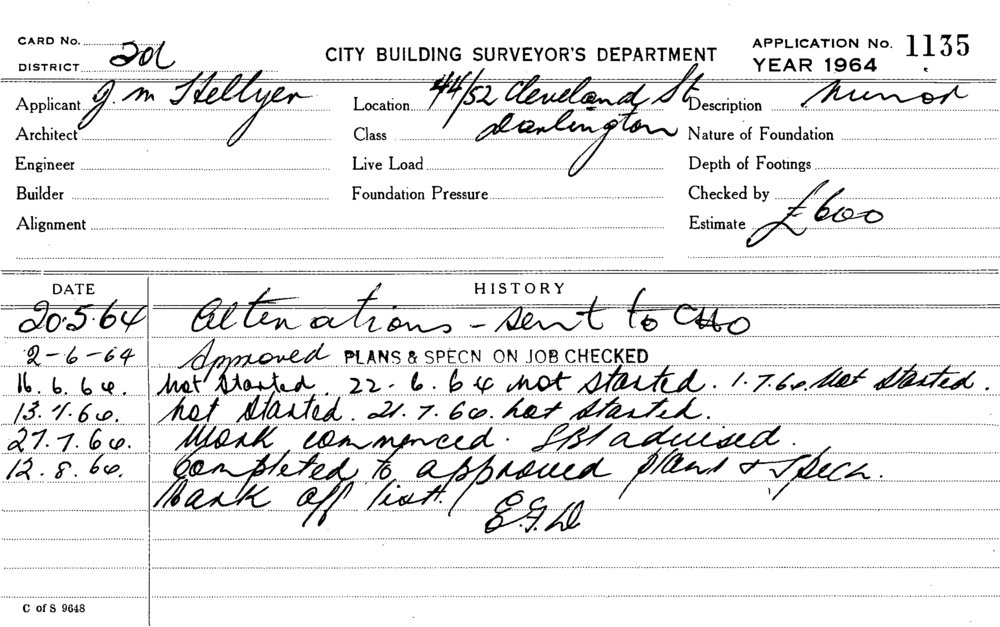 CARD No.
DISTRICT 2d
CITY BUILDING SURVEYOR'S DEPARTMENT
APPLICATION No. 1135
YEAR 1964
Applicant J. M Hellyer
Location 44/52 Cleveland St
Darlington
Description Minor
Architect
Class
Nature of Foundation
Engineer
Live Load
Depth of Footings
Builder
Foundation Pressure
Checked by
Alignment
Estimate £600
DATE HISTORY
20.5.64 Alterations - sent to CHO
2-6-64 Approved PLANS & SPECN ON JOB CHECKED
16.6.64. Not Started. 22-6.64 not started. 1.7.64. Not Started.
13.7.64. Not Started. 21.7.64. not Started.
27.7.64. Work commenced. SBI advised.
12.8.64. Completed to approved plans & Specn.
Mark off list. E.G.D
C of S 9648